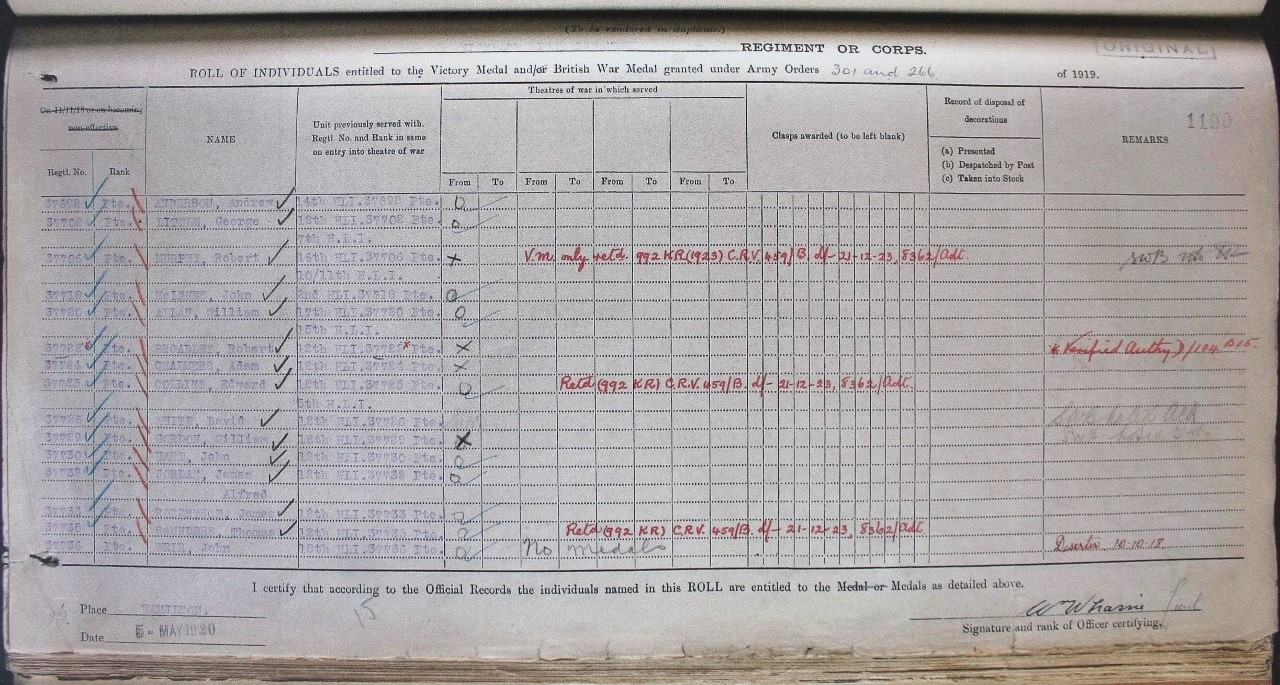 (To be rendered in duplicate.)
REGIMENT OR CORPS.
ORIGINAL
ROLL OF INDIVIDUALS entitled to the Victory Medal and/or British War Medal granted under Army Orders 301 and 266 of 1919.
On 11/11/18 or on becoming non-effective
Regtl. No.
Rank
NAME
Unit previously served with. Regtl. No. and Rank in same on entry into theatre of war
Theatres of war in which served
From To From To From To From To
Clasps awarded (to be left blank)
Record of disposal of decorations
(a) Presented
(b) Despatched by Post
(c) Taken into Stock
REMARKS
1190
Pte. ANDERSON, Andrew 14th HLI. Pte.
37702 Pte. LITTLE, George 12th HLI.37702 Pte.
7th H.L.I.
37706 Pte. MURPHY, Robert 16th HLI.37706 Pte. V.M. only retd. 992 KR(1923) C.R.V. 459/B. d/- 21-12-23, 8362/Adt.
10/11th H.L.I.
Pte. McINNES, John 2nd HLI. Pte.
37720 Pte. ALLAN, William 17th HLI.37720 Pte.
15th H.L.I.
Pte. BROADLEY, Robert 12th HLI. * Pte. * Verified Authy D/104
37724 Pte. CHALMERS, Adam 12th HLI.37724 Pte.
37725 Pte. COLLINS, Edward 12th HLI.37725 Pte. Retd (992 KR) C.R.V. 459/B. d/- 21-12-23, 8362/Adt.
5th H.L.I.
Pte. WHITE, David 12th HLI. Pte.
37729 Pte. GORDON, William 12th HLI.37729 Pte.
37730 Pte. HART, John 12th HLI.37730 Pte.
37732 Pte. JORDAN, James 12th HLI.37732 Pte.
Alfred
37733 Pte. James 12th HLI.37733 Pte.
37735 Pte. SAUNDERS, Thomas 12th HLI.37735 Pte. Retd (992 KR) C.R.V. 459/B. d/- 21-12-23, 8362/Adt.
37736 Pte. WEIR, John 12th HLI.37736 Pte. No medals Deserter 10.10.18.
I certify that according to the Official Records the individuals named in this ROLL are entitled to the Medal or Medals as detailed above.
Place HAMILTON.
15
Date 5 - MAY 1920
Signature and rank of Officer certifying.